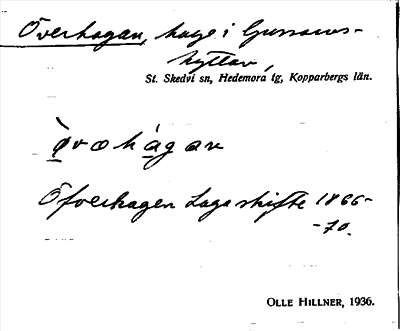 Överhagan, hage i Gussarvs-
hyttan,
St. Skedvi sn, Hedemora tg, Kopparbergs län.
ø̀vəhágan
Öfverhagen Laga skifte 1866-
-70.
OLLE HILLNER, 1936.